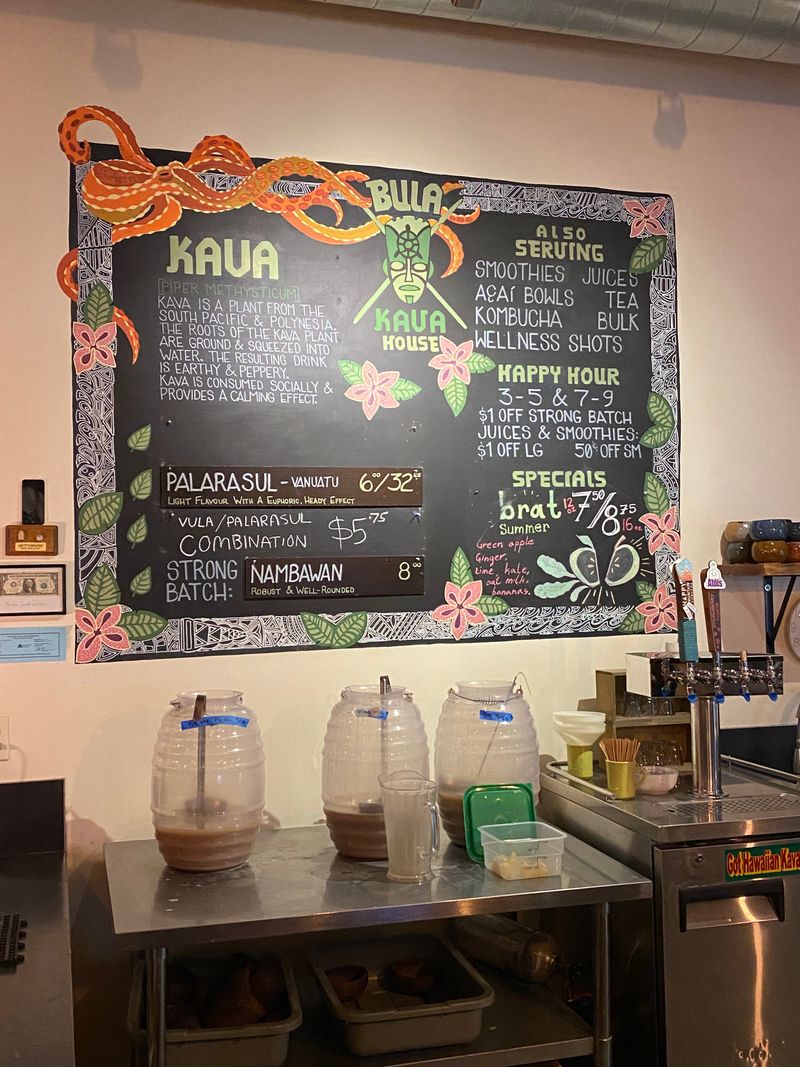 BULA
KAVA
HOUSE
KAVA
[PIPER METHYSTICUM]
KAVA IS A PLANT FROM THE
SOUTH PACIFIC & POLYNESIA.
THE ROOTS OF THE KAVA PLANT
ARE GROUND & SQUEEZED INTO
WATER. THE RESULTING DRINK
IS EARTHY & PEPPERY.
KAVA IS CONSUMED SOCIALLY &
PROVIDES A CALMING EFFECT.
PALARASUL - VANUATU 6.00/32.00
LIGHT FLAVOUR WITH A EUPHORIC, HEADY EFFECT
VULA/PALARASUL
COMBINATION $5.75
STRONG
BATCH:
NAMBAWAN 8.00
ROBUST & WELL-ROUNDED
ALSO
SERVING
SMOOTHIES JUICES
AÇAÍ BOWLS TEA
KOMBUCHA BULK
WELLNESS SHOTS
HAPPY HOUR
3-5 & 7-9
$1 OFF STRONG BATCH
JUICES & SMOOTHIES:
$1 OFF LG 50¢ OFF SM
SPECIALS
brat 12oz 7.50/8.75 16oz
Summer
Green apple
Ginger,
Lime, kale,
oat milk,
bananas.
Ahlis
Got Hawaiian Kava